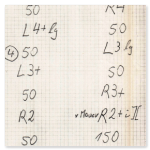 50
L4+lg
④ 50
L3+
50
R2
50
R4
50
L3lg
50
R3+
50
R2+i II
150